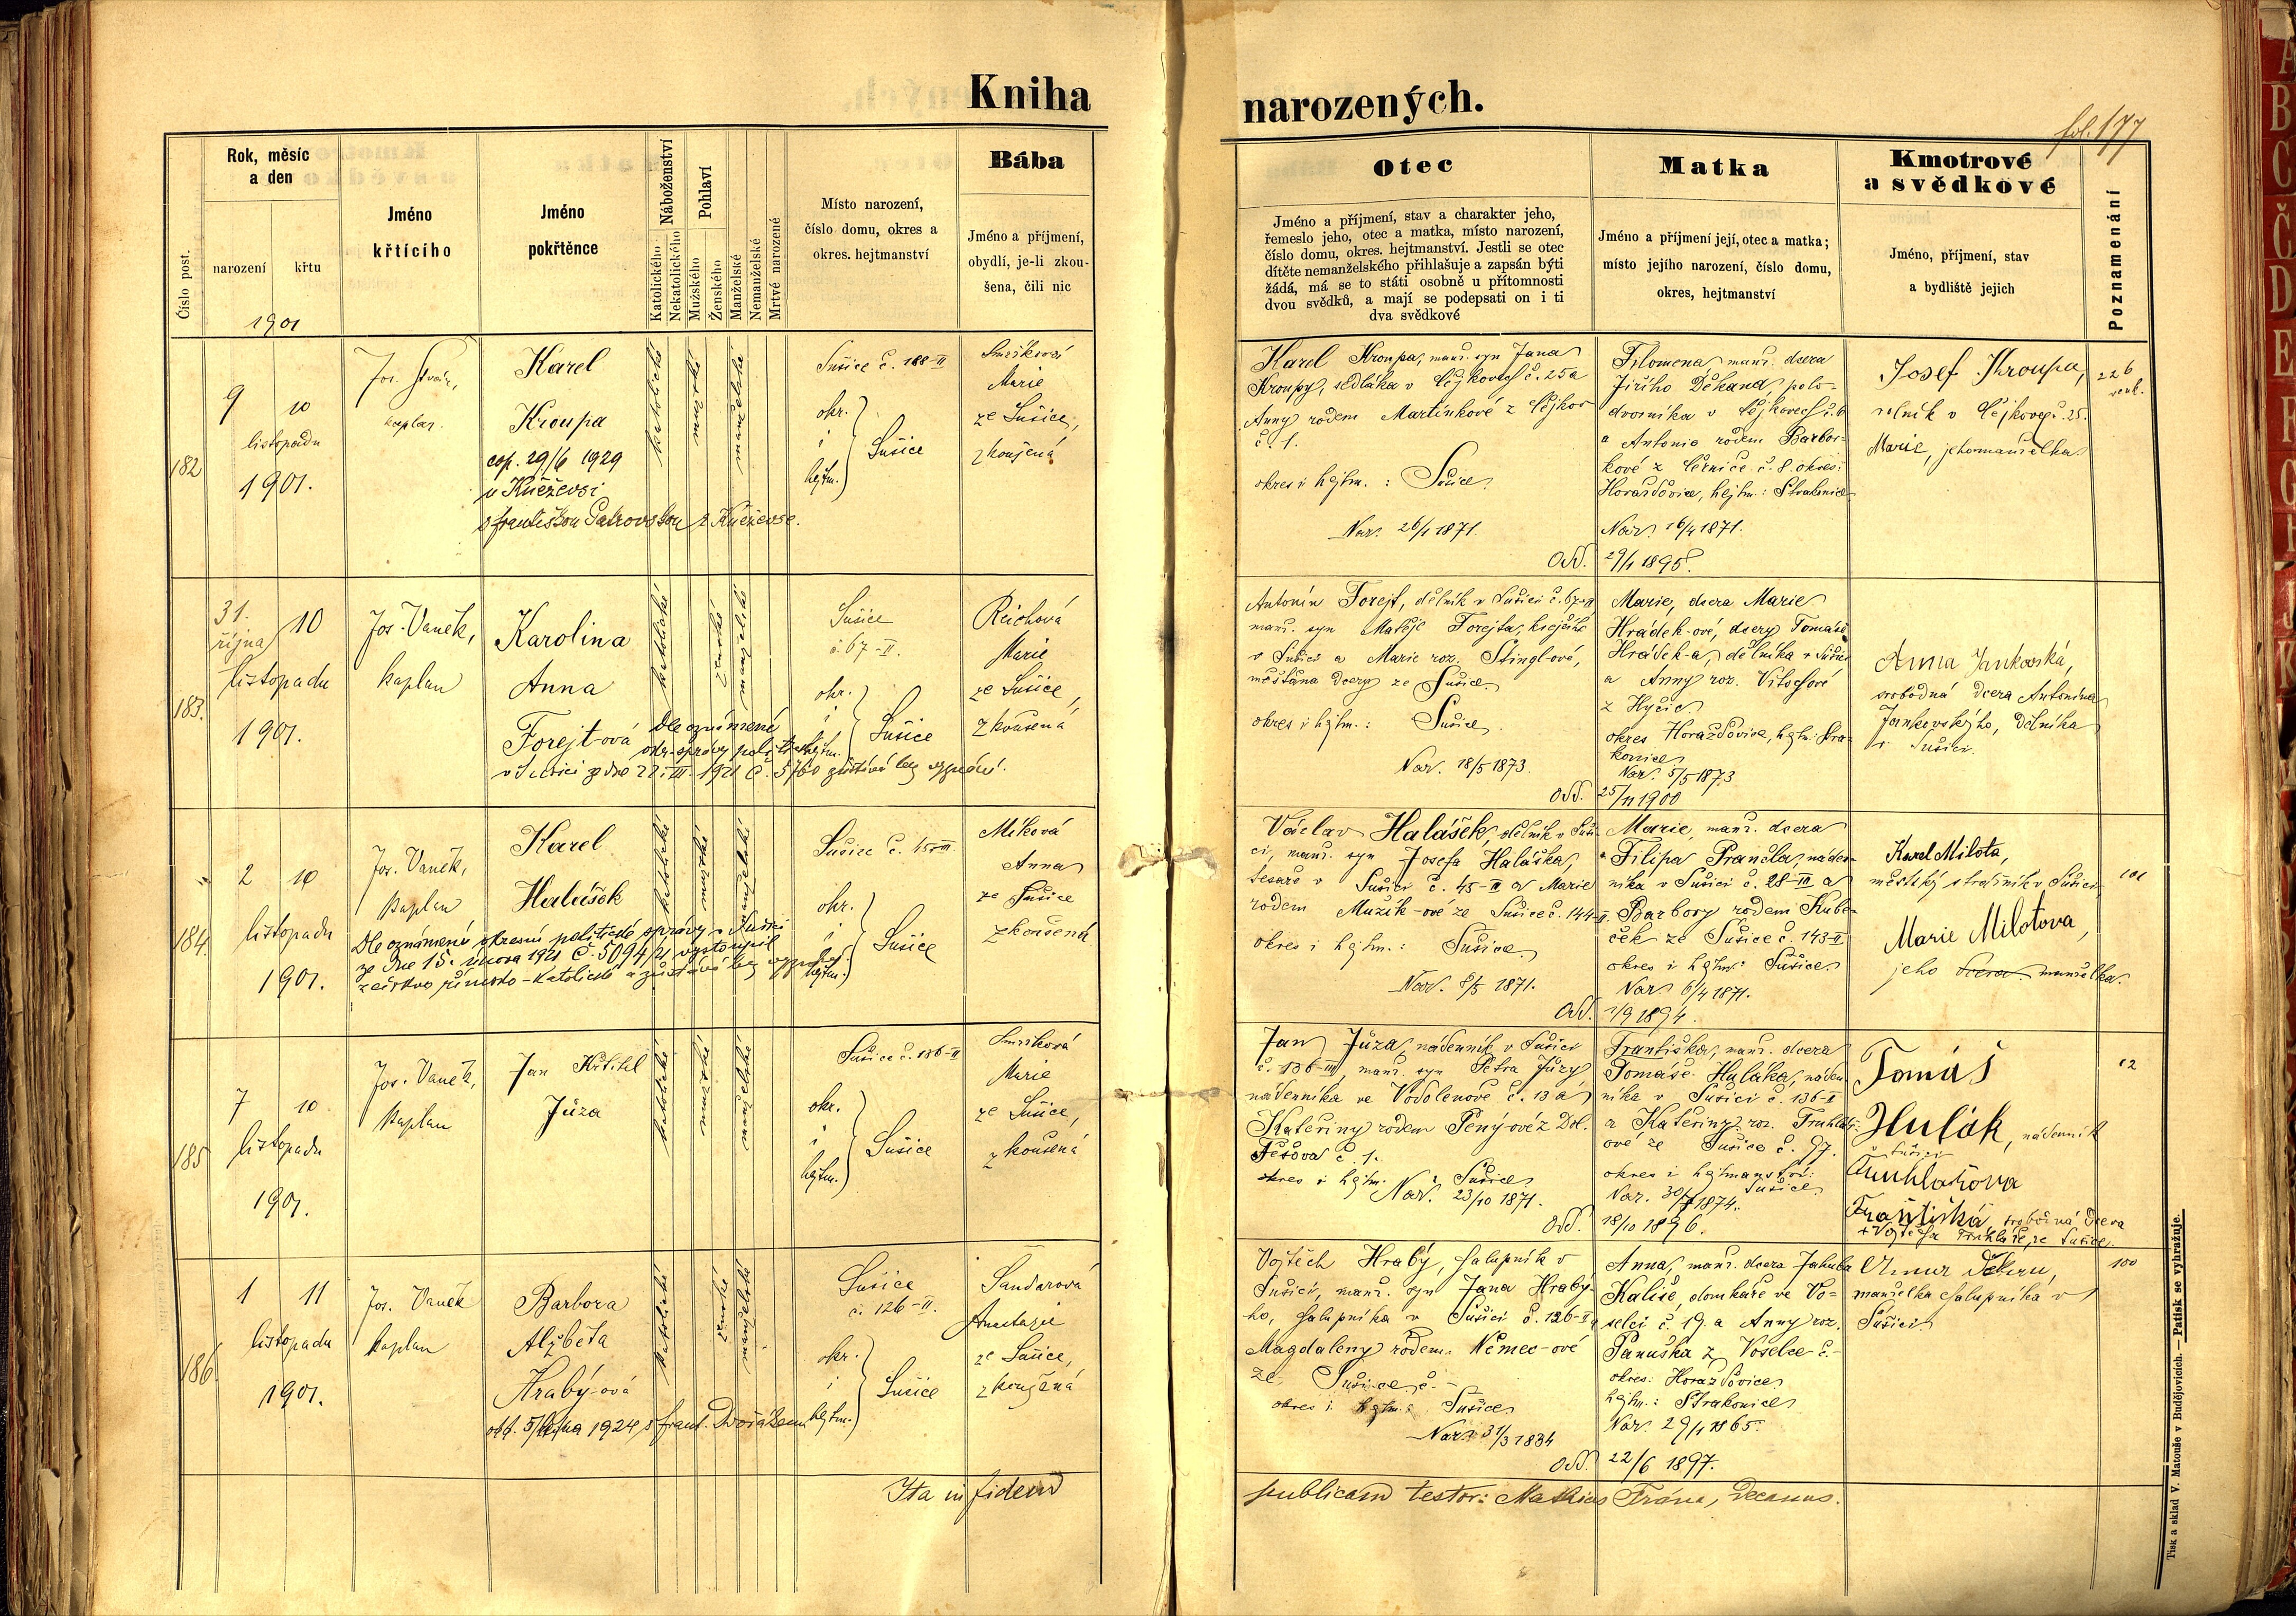 Kniha narozených.
fol. 177
Číslo post.
Rok, měsíc
a den
narození
křtu
1901
Jméno
křtícího
Jméno
pokřtěnce
Náboženství
Katolického
Nekatolického
Pohlaví
Mužského
Ženského
Manželské
Nemanželské
Mrtvé narozené
Místo narození,
číslo domu, okres a
okres. hejtmanství
Bába
Jméno a příjmení,
obydlí, je-li zkou-
šena, čili nic
Otec
Jméno a příjmení, stav a charakter jeho,
řemeslo jeho, otec a matka, místo narození,
číslo domu, okres. hejtmanství. Jestli se otec
dítěte nemanželského přihlašuje a zapsán býti
žádá, má se to státi osobně u přítomnosti
dvou svědků, a mají se podepsati on i ti
dva svědkové
Matka
Jméno a příjmení její, otec a matka;
místo jejího narození, číslo domu,
okres, hejtmanství
Kmotrové
a svědkové
Jméno, příjmení, stav
a bydliště jejich
Poznamenání
182
9 10
listopadu
1901.
kaplan.
Karel
Kroupa
cop. 29/6 1929
v Kněževsi
katolické
mužské
manželské
Sušice č. 188-II
okr.
i
hejtm.
Sušice
Smrčková
Marie
ze Sušice,
zkoušená
Karel Kroupa, manž. syn Jana
Kroupy, sedláka v Čejkovech č. 25 a
Anny rodem Martínkové z Čejkov
č. 1.
okres i hejtm.: Sušice.
Nar. 26/1 1871.
Filomena manž. dcera
Jiřího Děkana, polo-
dvorníka v Čejkovech č. 6
a Antonie rodem Barbor-
kové z č. 8. okres:
Horažďovice, hejtm.: Strakonice
Nar. 16/4 1871.
Odd. 29/1 1895.
Josef Kroupa,
rolník v Čejkovech č. 25.
Marie, jeho manželka
226
183.
31.
října 10
listopadu
1901.
Jos. Vaněk,
kaplan
Karolina
Anna
Forejt-ová
Dle oznámení
okr. správy polit.
v Sušici ze dne 22. III. 1921 č. 5760 zůstává bez vyznání.
katolické
ženské
manželské
Sušice
č. 67-II.
okr.
i
hejtm.
Sušice
Reichová
Marie
ze Sušice,
zkoušená
Antonín Forejt, dělník v Sušici č. 67-II
manž. syn Matěje Forejta, krejčího
v Sušici a Marie roz. Stingl-ové,
měšťana dcery ze Sušice.
okres i hejtm.: Sušice.
Nar. 18/5 1873.
Marie, dcera Marie
Hrádek-ové, dcery Tomáše
Hrádek-a, dělníka v Sušici
a Anny roz.
z Hyčic
okres Horažďovice, hejtm: Stra-
konice
Nar. 5/5 1873
Odd. 25/11 1900
Anna Jankovská,
svobodná dcera Antonína
Jankovského, dělníka
v Sušici.
184.
2 10
listopadu
1901.
Jos. Vaněk,
kaplan
Karel
Halášek
Dle oznámení okresní politické správy v Sušici
ze dne 15. února 1921 č. 5094/21 vystoupil
z církve římsko-katolické a zůstává bez vyznání.
katolické
mužské
manželské
Sušice č.
okr.
i
hejtm.
Sušice
Míková
Anna
ze Sušice
zkoušená
Václav Halášek, dělník v Suši-
ci, manž. syn Josefa Haláška,
tesaře v Sušici č. 45-II a Marie
rodem Mužík-ové ze Sušice č. 144-II.
okres i hejtm.: Sušice.
Nar. 8/5 1871.
Marie, manž. dcera
Filipa Prančla, náden-
níka v Sušici č. 28-III a
Barbory rodem Kube-
ček ze Sušice č. 143-II
okres i hejtm: Sušice.
Nar. 6/4 1871.
Odd. 1/9 1894.
Karel Milota,
městský strážník v Sušici
Marie Milotova,
jeho dcera manželka.
101
185
7 10
listopadu
1901.
Jos. Vaněk,
kaplan
Jan Křtitel
Jůza
katolické
mužské
manželské
Sušice č. 136-II
okr.
i
hejtm.
Sušice
Smrčková
Marie
ze Sušice,
zkoušená
Jan Jůza, nádenník v Sušici
č. 136-II, manž. syn Petra Jůzy
nádenníka ve Vodolenově č. 13 a
Kateřiny rodem Pený-ové z Dol.
Těšova č. 1.
okres i hejtm. Sušice
Nar. 23/10 1871.
Františka, manž. dcera
Tomáše Huláka, náden-
níka v Sušici č. 136-II
a Kateřiny roz. Truhlář-
ové ze Sušice č. 97.
okres i hejtmanství:
Sušice
Nar. 30/7 1874.
Odd. 18/10 1896.
Tomáš
Hulák, nádenník
v Sušici
Truhlářova
Františka, svobodná dcera
+ Vojtěcha Truhláře, ze Sušice.
62
186
1 11
listopadu
1901.
Jos. Vaněk
kaplan
Barbora
Alžběta
Hrabý-ová
odd. 5/ 1924 s Frant. Dvořákem
katolické
ženské
manželské
Sušice
č. 126-II.
okr.
i
hejtm.
Sušice
Sandarová
Anastazie
ze Sušice,
zkoušená
Vojtěch Hrabý, chalupník v
Sušici, manž. syn Jana Hrabý-
ho, chalupníka v Sušici č. 126-II,
Magdaleny rodem Němec-ové
ze Sušice č. -
okres i hejtm.: Sušice
Nar. 31/3 1834
Anna, manž. dcera Jakuba
Kališe, domkáře ve Vo-
selci č. 19. a Anny roz.
Panuška z Voselce č. -
okres: Horažďovice
hejtm.: Strakonice
Nar. 29/1 1865.
Odd. 22/6 1897.
manželka chalupníka v
Sušici
100
Ita in fidem publicam testor: Mathias Frána, Decanus.
Tisk a sklad V. Matouše v Budějovicích. — Patisk se vyhražuje.
A
B
C
Č
D
E
F
G